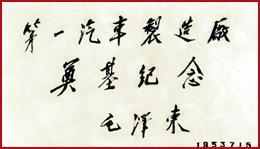 第一汽車製造廠
奠基紀念
毛澤東
1953715